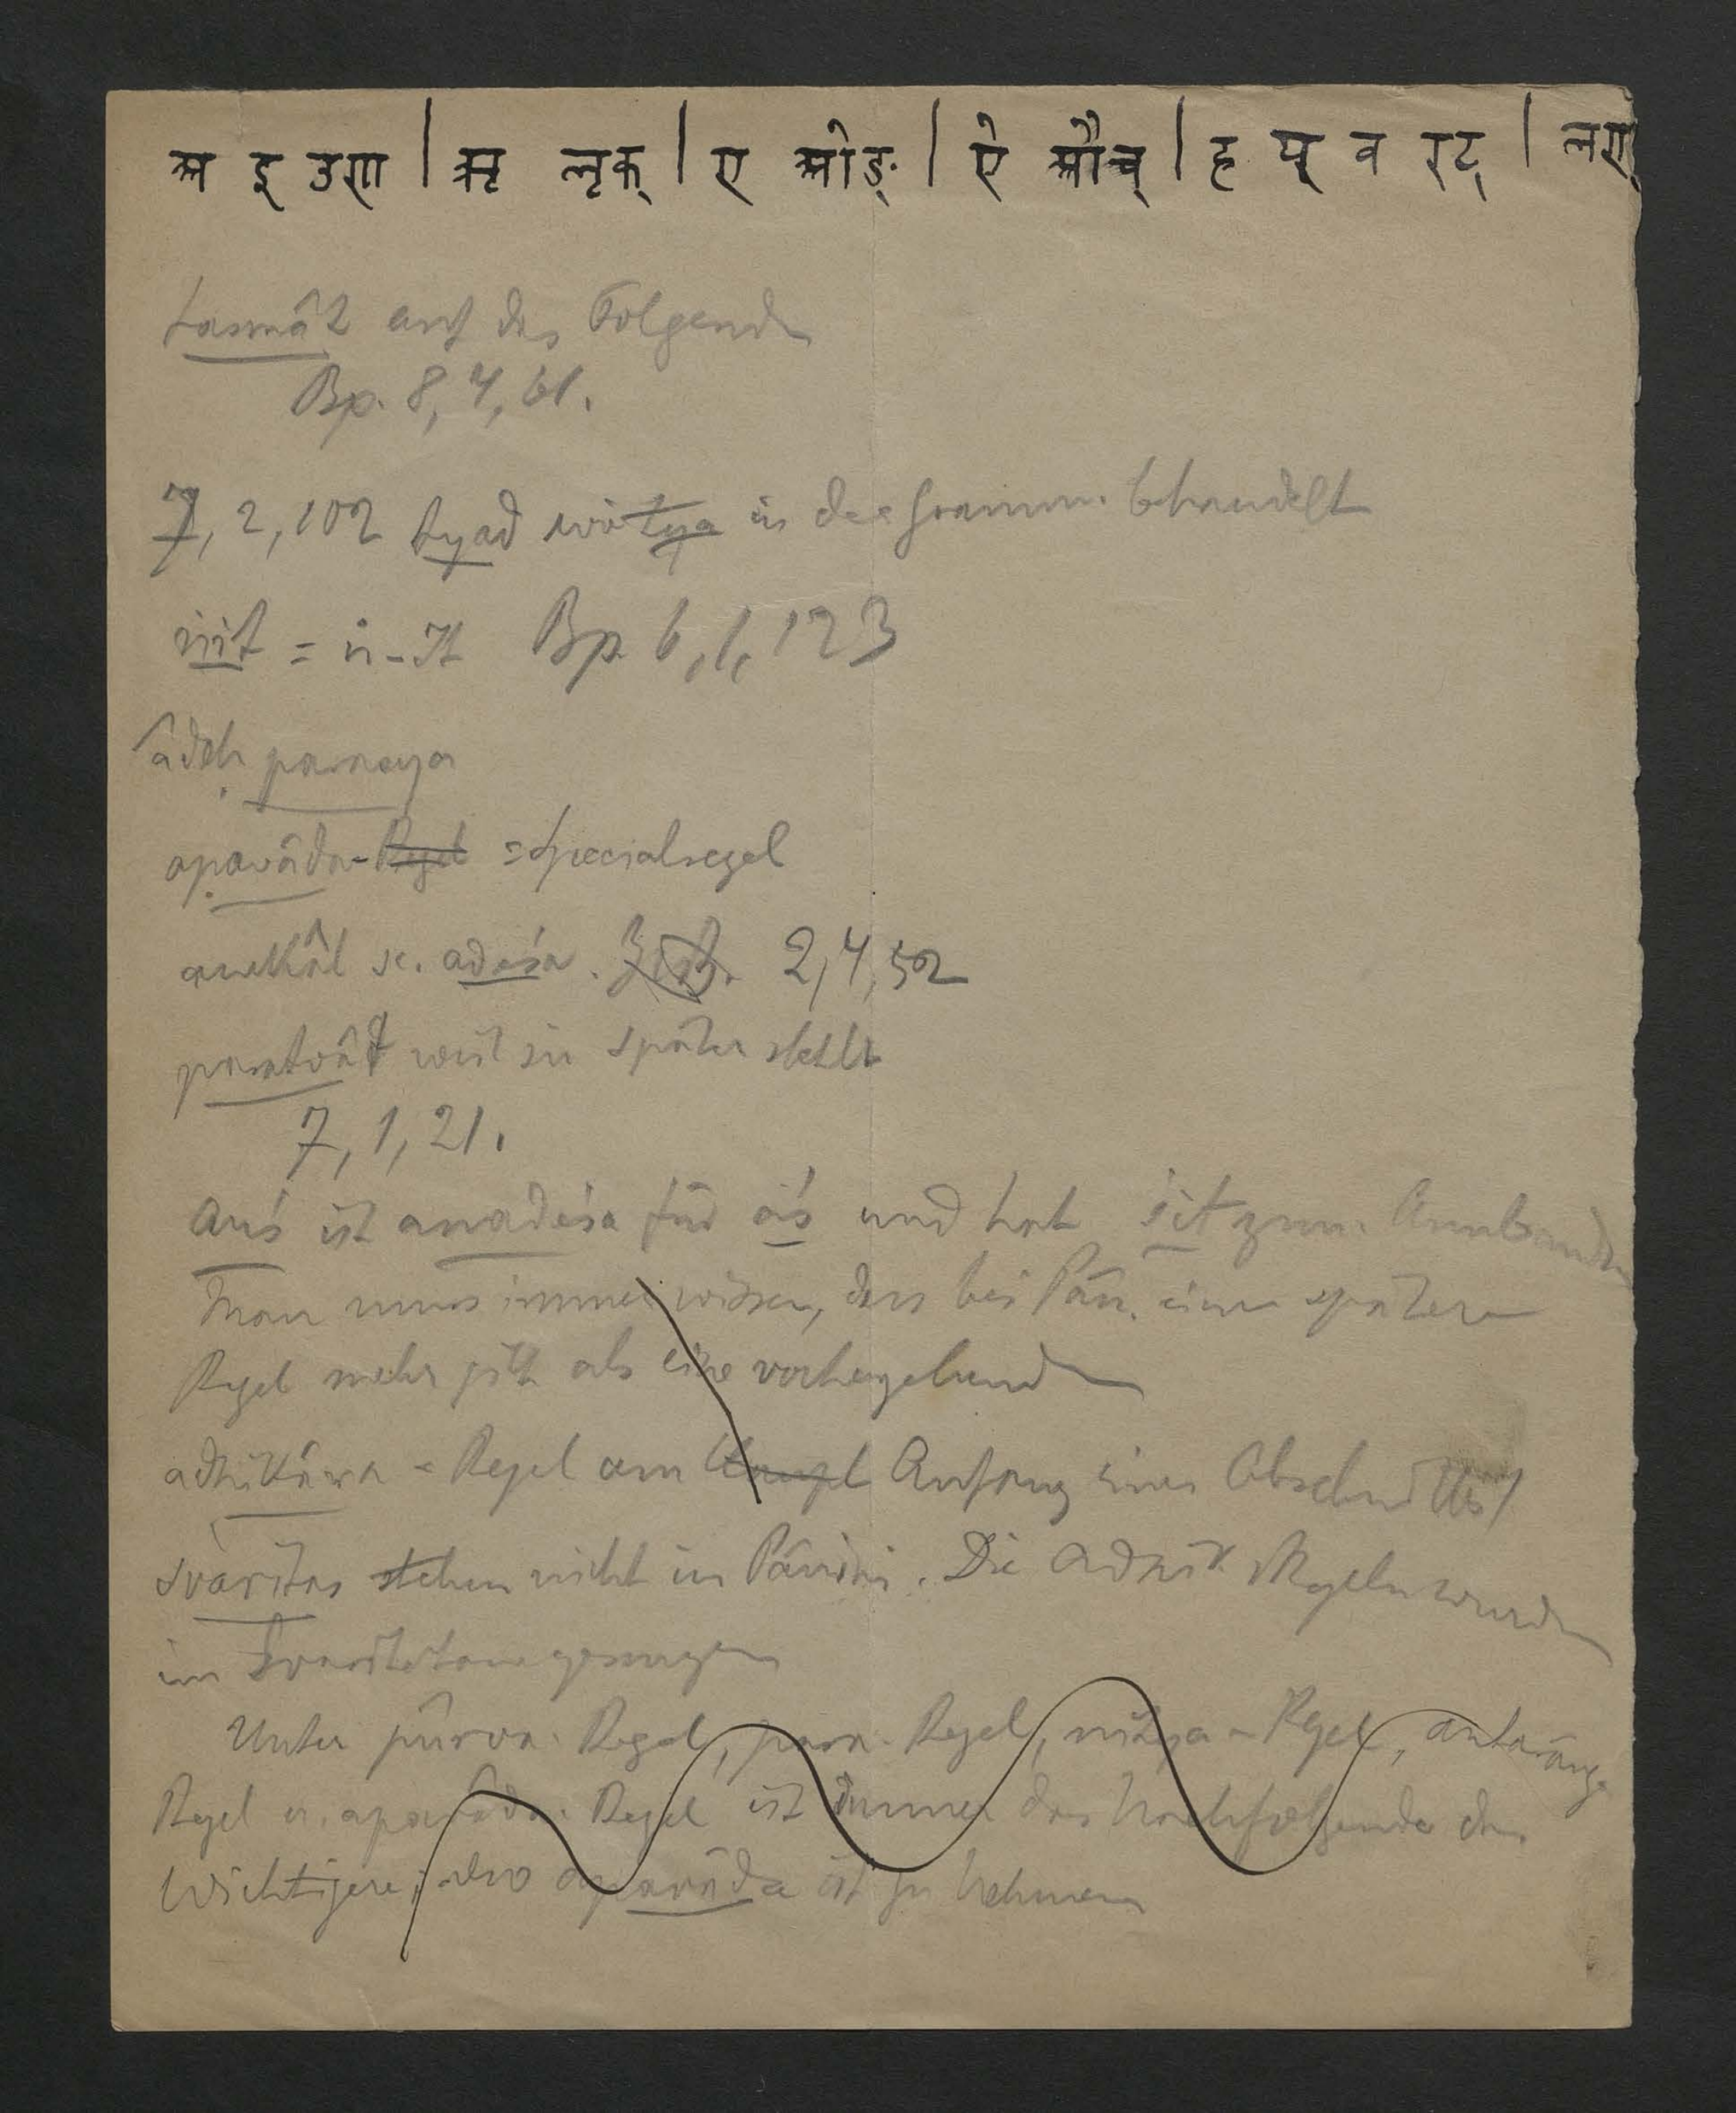 अ इ उण | ऋ लृक् | ए ओङ् | ऐ औच् | ह य् व रट् | लण्
tasmât auf das Folgende
Bp. 8, 4, 61.
7, 2, 102 tyad wie tya in der Gramm. behandelt
ṅit = ṅ-It Bp. 6, 1, 123
âdeḥ parasya
apavâda-Regel = Specialregel
anekâl sc. adeśa. 2, 4, 52
paratvât weil sie später steht
7, 1, 21.
auś ist anadeśa für aś und hat śit zum Anubandha
Man muss immer wissen, dass bei Pâṇ. eine spätere
Regel mehr gilt als eine vorhergehende
adhikâra = Regel am Kapl Anfang eines Abschnittes
svaritas stehen nicht in Pâṇini. Die adhik. Regeln wurden
im Svaritatone gesungen
Unter pûrva-Regel, para-Regel, nitya-Regel, antaranga
Regel u. apavâda-Regel ist immer das Nachfolgende das
Wichtigere; also apavâda ist zu nehmen